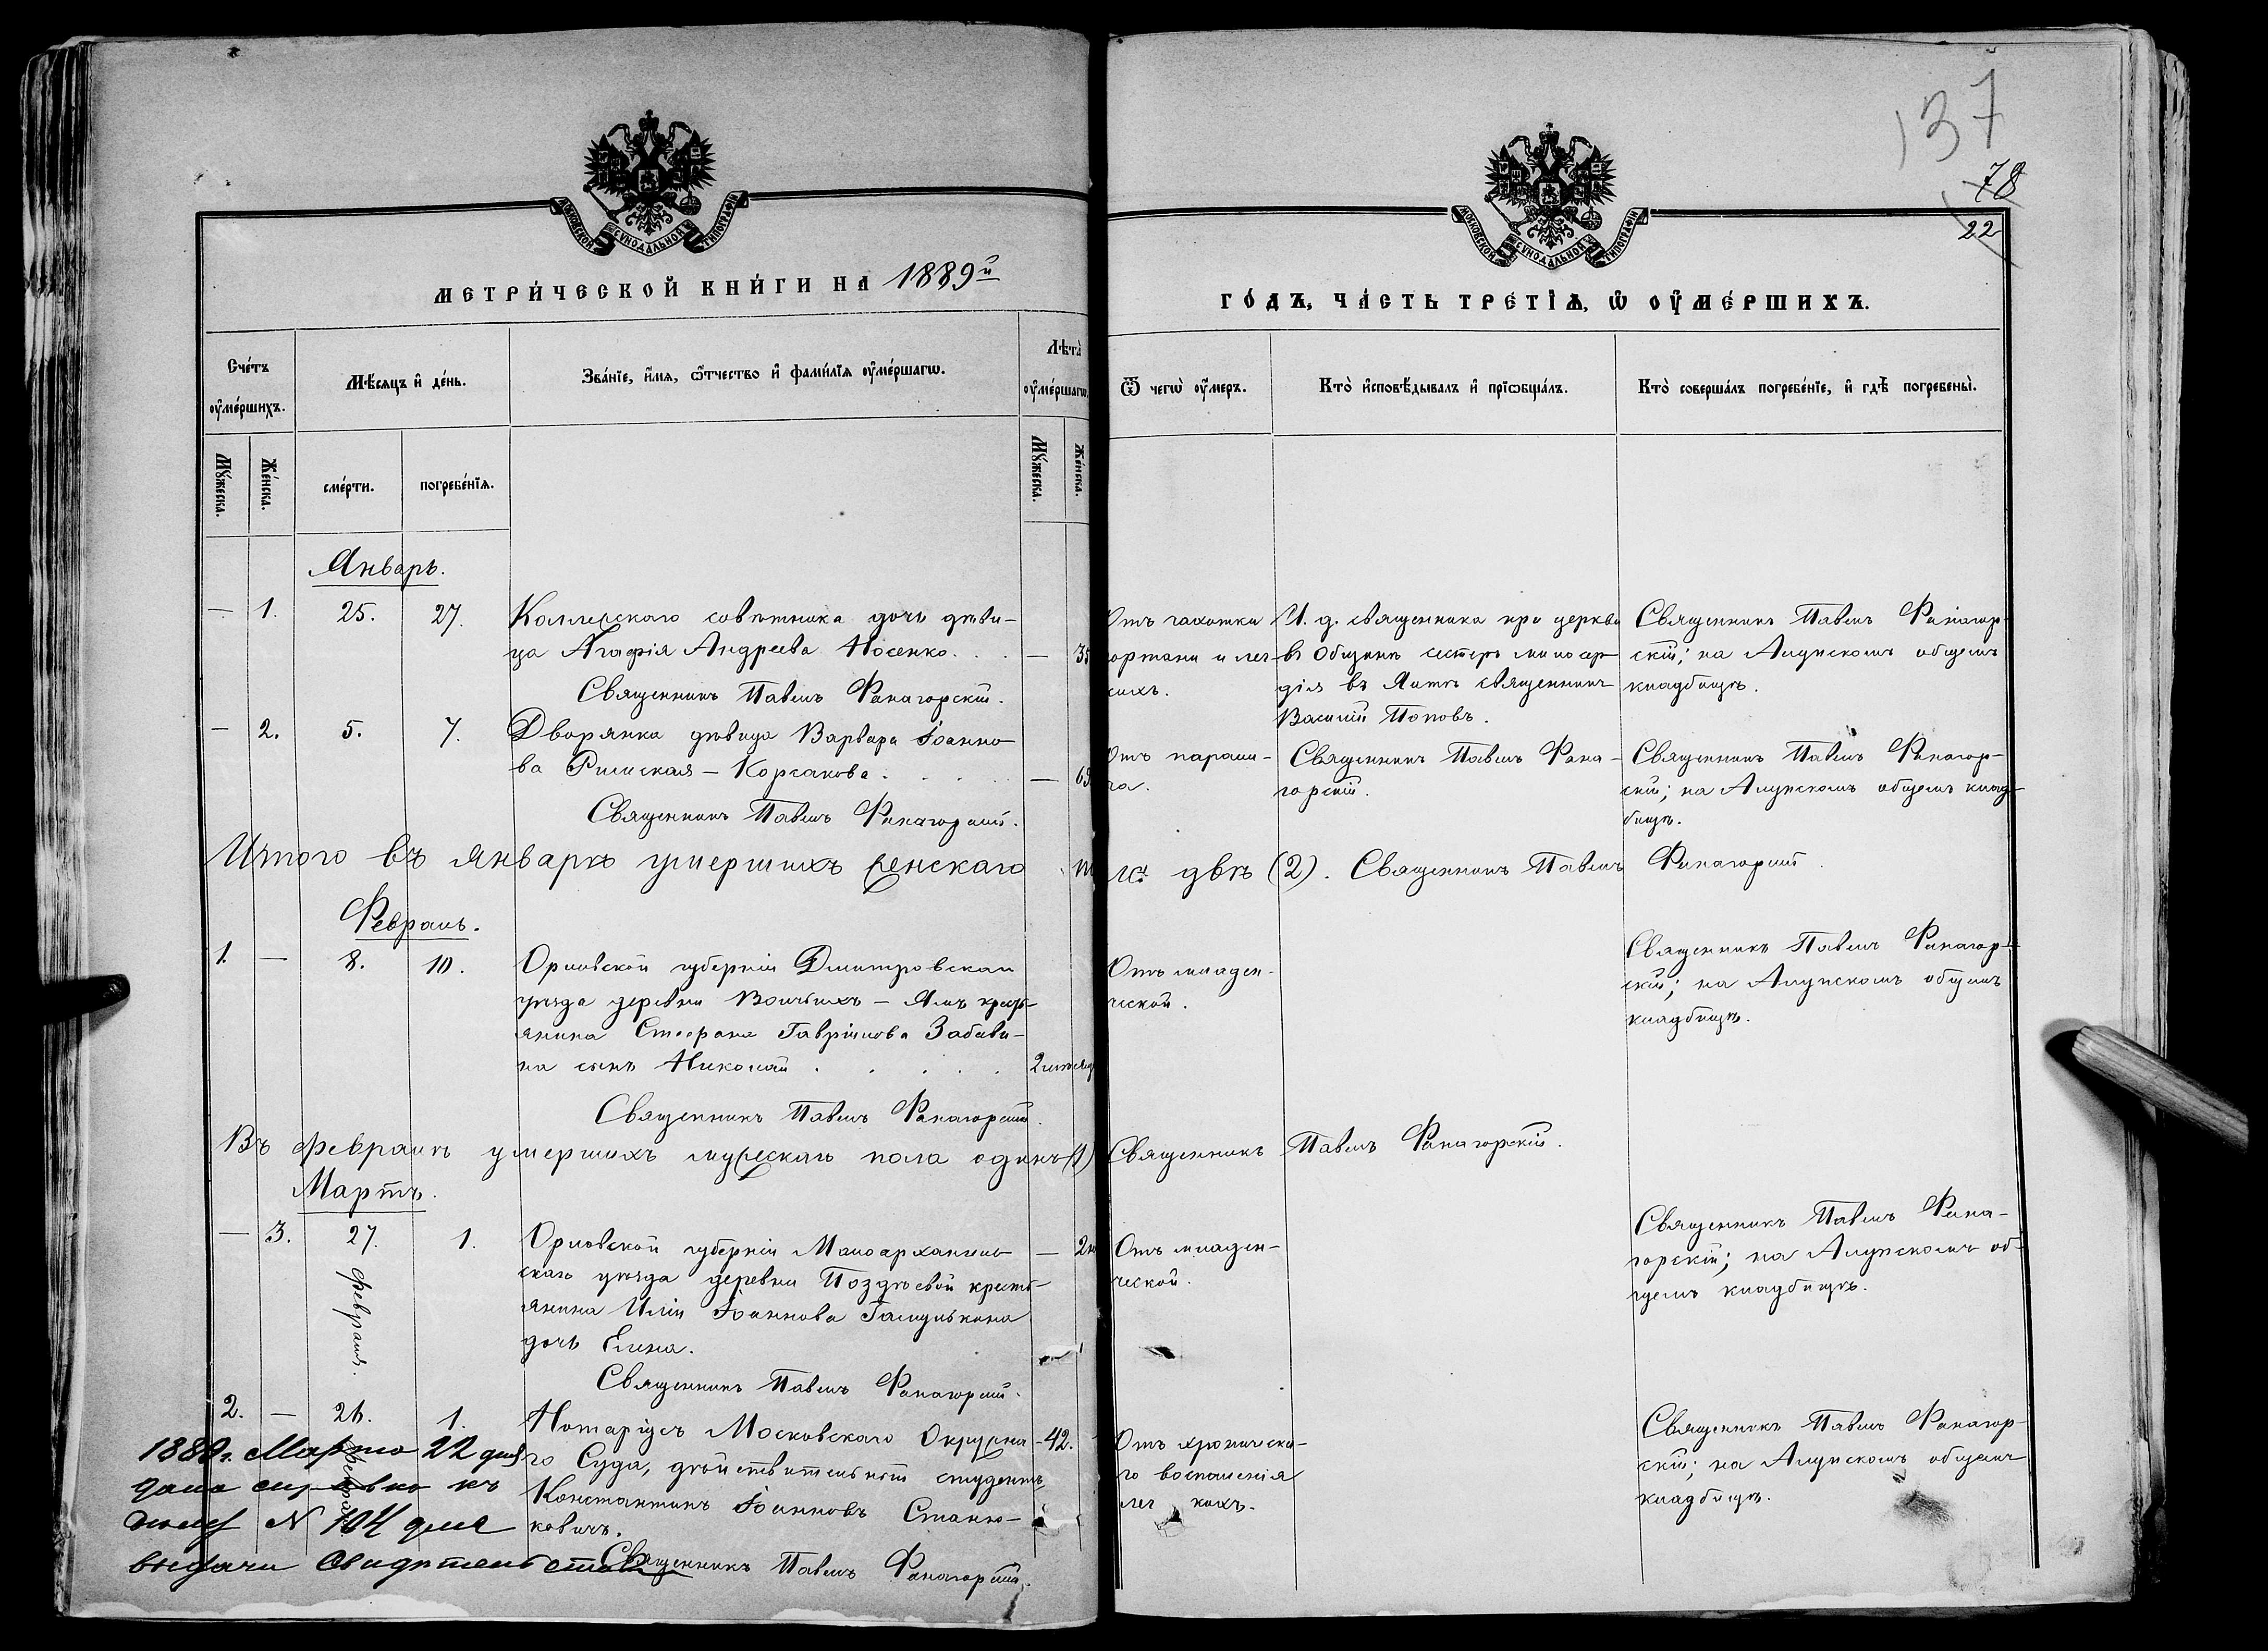 137
78
22
МОСКОВСКОЙ СѴНОДАЛЬНОЙ ТИПОГРАФІИ
МОСКОВСКОЙ СѴНОДАЛЬНОЙ ТИПОГРАФІИ
МЕТРИ́ЧЕСКОЙ КНИ́ГИ НА 1889й
ГО́ДЪ, ЧА́СТЬ ТРЕ́ТІѦ, Ѡ ОУ҆МЕ́РШИХЪ.
Сче́тъ оу҆ме́ршихъ.
Мѣ́сяцъ и҆ де́нь.
Зва́нїе, и҆́мѧ, ѿтчество и҆ фами́лїѧ оу҆ме́ршагѡ.
Лѣта̀ оу҆ме́ршагѡ.
Ѿ чегѡ̀ оу҆́меръ.
Кто̀ и҆сповѣ́дывалъ и҆ прїѡбща́лъ.
Кто̀ соверша́лъ погребе́нїе, и҆ гдѣ̀ погребены̀.
Мꙋ́жеска.
Же́нска.
сме́рти.
погребе́нїѧ.
Мꙋ́жеска.
Же́нска.
Январь.
— 1. 25. 27. Коллежскаго совѣтника дочь дѣви-
ца Агафія Андреева Носенко. . . — 35
Священникъ Павелъ Фанагорскій.
Отъ чахотки
гортани и лег-
кихъ.
И. д. священника при церкви
въ Общинѣ сестеръ милосер-
дія въ Ялтѣ священникъ
Василій Поповъ.
Священникъ Павелъ Фанагор-
скій; на Алупскомъ общемъ
кладбищѣ.
— 2. 5. 7. Дворянка дѣвица Варвара Іоанно-
ва Римская-Корсакова. . . . — 69
Священникъ Павелъ Фанагорскій.
Отъ парали-
ча.
Священникъ Павелъ Фана-
горскій.
Священникъ Павелъ Фанагор-
скій; на Алупскомъ общемъ клад-
бищѣ.
Итого въ Январѣ умершихъ женскаго
двѣ (2). Священникъ Павелъ Фанагорскій
Февраль.
1. — 8. 10. Орловской губерніи Дмитровскаго
уѣзда деревни Волчьихъ-Ямъ кресть-
янина Стефана Гавріилова Забави-
на сынъ Николай . . . . . 2 мѣсяц
Священникъ Павелъ Фанагорскій.
Отъ младен-
ческой.
Священникъ Павелъ Фанагор-
скій; на Алупскомъ общемъ
кладбищѣ.
Въ Февралѣ умершихъ мужескаго пола одинъ (1) Священникъ Павелъ Фанагорскій.
Мартъ.
— 3. 27. 1. Орловской губерніи Малоархангель-
скаго уѣзда деревни Поздѣевой кресть-
янина Иліи Іоаннова Галушкина
дочь Елена.
февраля.
— 2
Священникъ Павелъ Фанагорскій.
Отъ младен-
ческой.
Священникъ Павелъ Фана-
горскій; на Алупскомъ об-
щемъ кладбищѣ.
2. — 26. 1. Нотаріусъ Московскаго Окружна- 42.
го Суда, дѣйствительный студентъ
Константинъ Іоанновъ Станю-
ковичъ.
февраля
Священникъ Павелъ Фанагорскій.
Отъ хроническа-
го воспаленія
лег кихъ.
Священникъ Павелъ Фанагор-
скій; на Алупскомъ общемъ
кладбищѣ.
1889 г. Марта 22 дня
дана справка къ
№ 104 для
выдачи Свидѣтельства